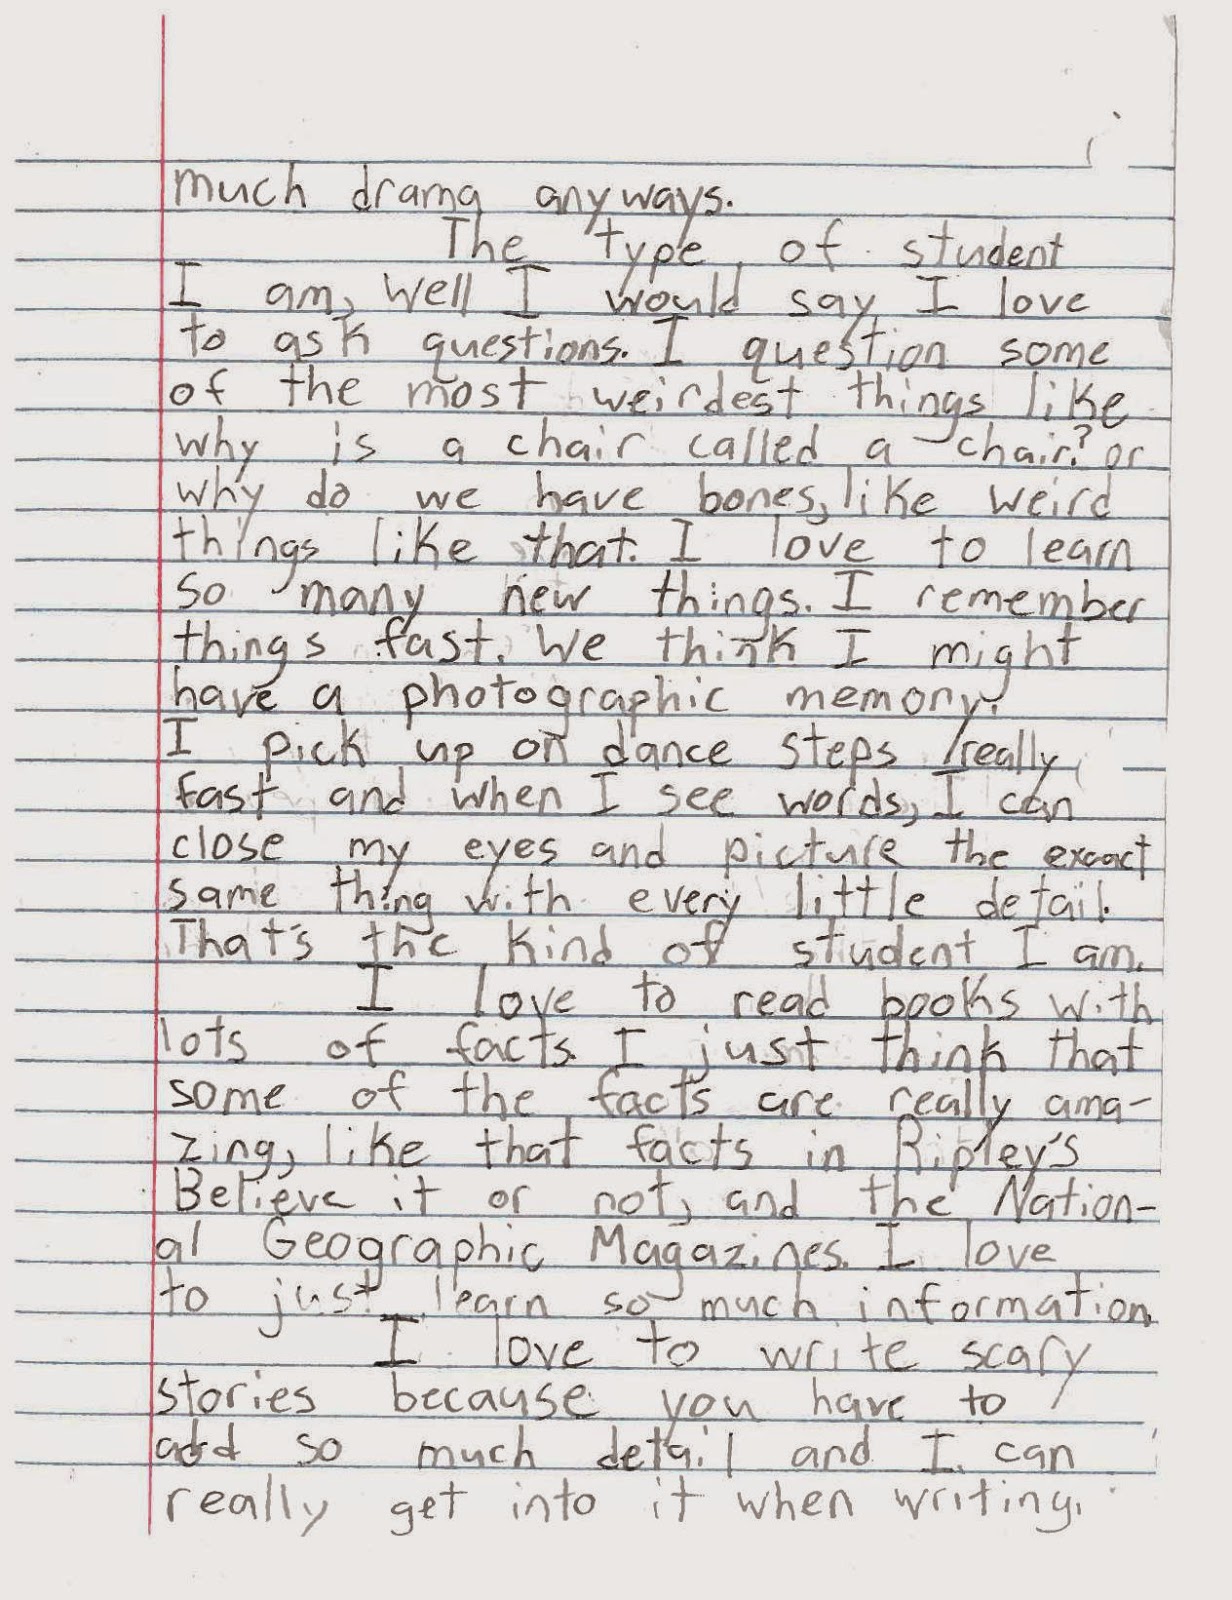 much drama anyways.
The type of student
I am, well I would say I love
to ask questions. I question some
of the most weirdest things like
why is a chair called a chair? or
why do we have bones, like weird
things like that. I love to learn
so many new things. I remember
things fast. We think I might
have a photographic memory.
I pick up on dance steps really
fast and when I see words, I can
close my eyes and picture the exact
same thing with every little detail.
That's the kind of student I am.
I love to read books with
lots of facts. I just think that
some of the facts are really ama-
zing, like that facts in Ripley's
Believe it or not, and the Nation-
al Geographic Magazines. I love
to just learn so much information.
I love to write scary
stories because you have to
add so much detail and I can
really get into it when writing.